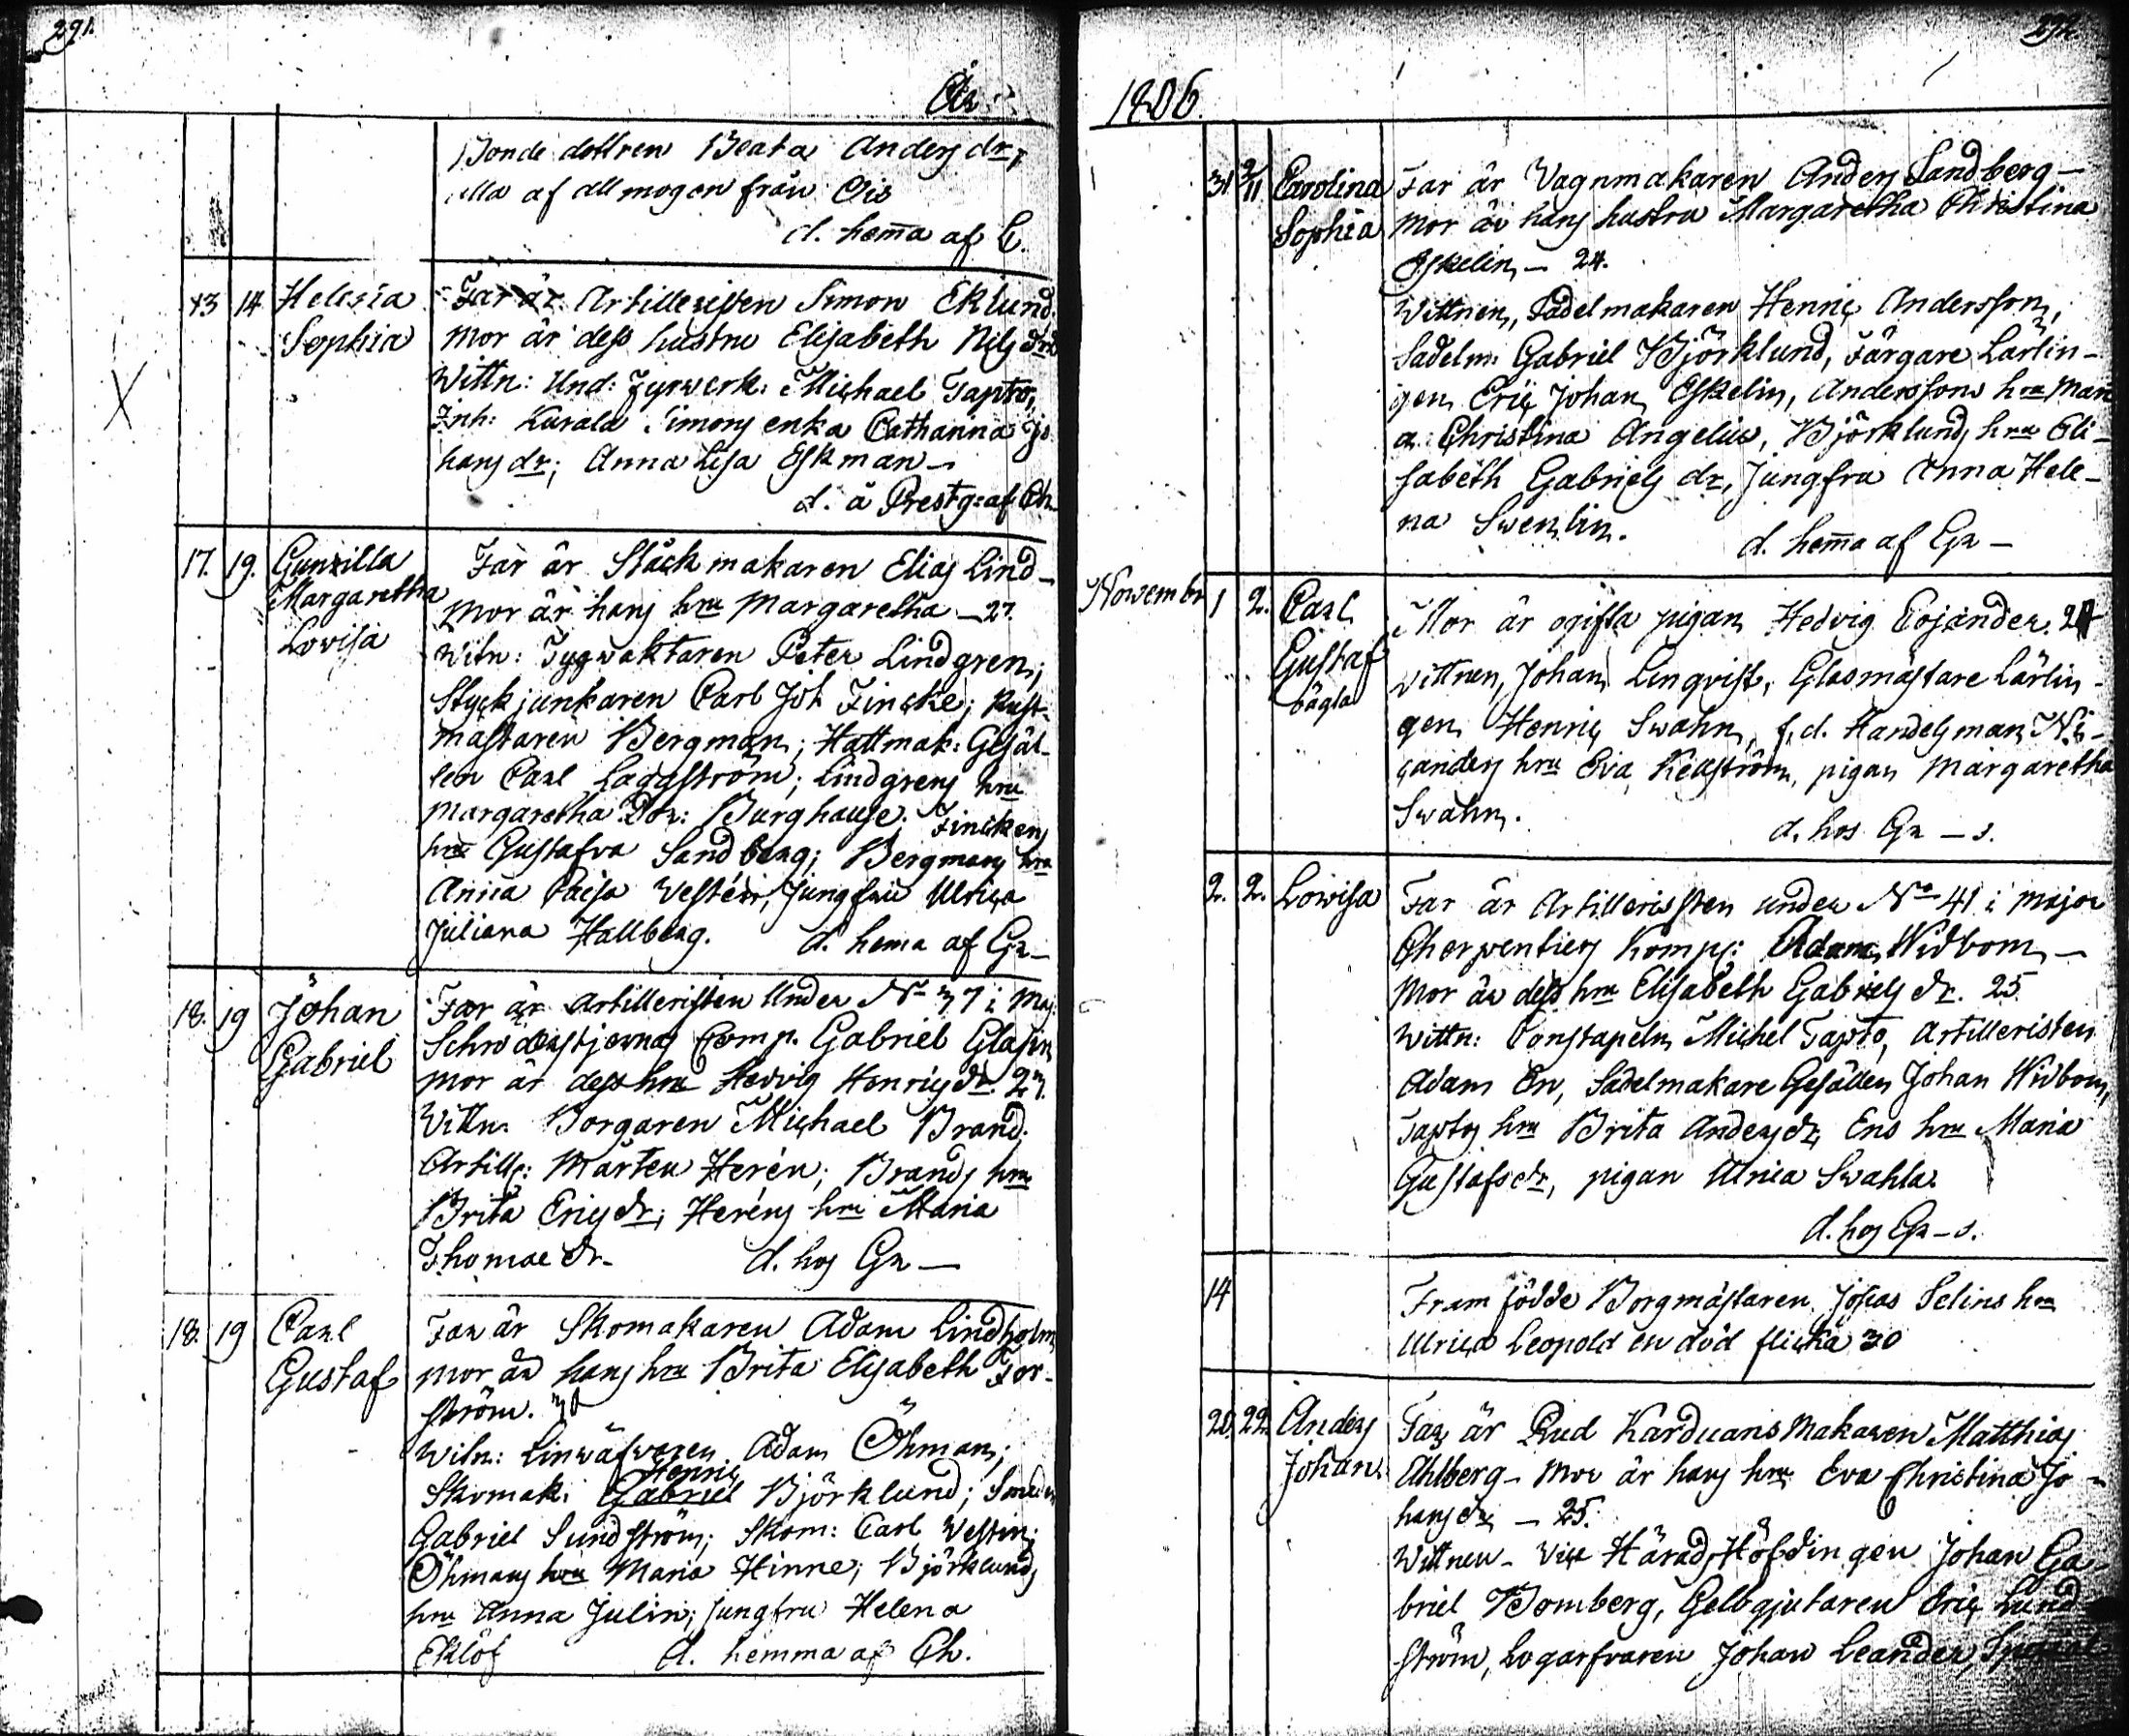 291.
År
Bonde dottren Beata Anders dr,
alla af allmogen från
d. hem̄a af C.
13 14 Helena Far är Artilleristen Simon Eklund.
Sophia Mor är dess hustru Elisabeth Nils
Wittn: Und: Fyrwerk: Michael Tapto,
Inh: Simons enka Catharina Jo
hans dr; Anna Lisa Eskman –
d. å Prestg: af Ch
17. 19. Gunnilla Far är Ståckmakaren Elias Lind –
Margaretha Mor är hans hru Margaretha – 27.
Lovisa
Witn: Tygwaktaren Peter Lindgren;
Styckjunkaren Carl Joh Fincke; Rust-
mästaren Bergman; Hattmak: Gesäl-
len Carl Laggström; Lindgrens hru
Margaretha Dor: Burghause. Finckens
hru Gustafva Sandberg; Bergmans hru
Anna Caisa Jungfru Ulrica
Juliana Hallberg. d. hema af Gr –
18. 19 Johan Far är Artilleristen Under No 37 i Maj:
Gabriel Schroderstjernas Comp. Gabriel Glasin
Mor är dess hru Hedvig Henrics dr. 27.
Vittn. Borgaren Michael Brand;
Artill: Mårten Herén; Brands hru
Brita Erics dr; Heréns hru Maria
Thomae dr. d. hos Gr –
18. 19 Carl Far är Skomakaren Adam Lindholm
Gustaf Mor är hans hru Brita Elisabeth For-
ström. 30
Witn: Linwäfvaren Adam Öhman;
Henric
Skomak: Gabriel Björklund; Smeden
Gabriel Sundström; Skom: Carl Westin;
Öhmans hru Maria Hinne; Björklunds
hru Anna Julin; Jungfru Helena
Eklöf d. hemma af Ch.
292.
1806.
31 2/11 Carolina Far är Vagnmakaren Anders Sandberg –
Sophia Mor är hans hustru Margaretha Christina
Eskelin – 24.
Wittnen, Sadelmakaren Henric Andersson,
Sadelm: Gabriel Björklund, Färgare Lärlin-
gen Eric Johan Eskelin, Anderssons hru Mari
a Christina Angelus, Björklunds hru Eli-
sabeth Gabriels dr, Jungfru Anna Hele-
na Swenlin. d. hem̄a af Gr –
Novembr 1 2. Carl Mor är ogifta pigan Hedvig Cojander. 24
Gustaf
oägta
Vittnen, Johan Linqvist, Glasmästare Lärlin-
gen Henric Swahn, f. d. Handelsman Ni-
canders hru Eva Kellström, pigan Margaretha
Swahn. d. hos Gr – s.
2. 2. Lovisa Far är Artilleristen under No 41 i Major
Charpentiers Komp: Adam Widbom –
Mor är dess hru Elisabeth Gabriels dr. 25.
Wittn: Constapeln Michel Tapto, Artilleristen
Adam En, Sadelmakare Gesällen Johan Widbom,
Taptos hru Brita Anders dr, Ens hru Maria
Gustafs dr, pigan Ulrica Swahla
d. hos Gr – s.
14 Fram födde Borgmästaren Josias Selins hru
Ulrica Leopold en död flicka 30
20. 22. Anders Far är Rud Karduans Makaren Matthias
Johan Ahlberg – Mor är hans hru Eva Christina Jo-
hans dr – 25.
Wittnen – Vice Härads Höfdingen Johan Ga-
briel Bomberg, Gelbgjutaren Eric Lund-
ström, Logarfvaren Johan Leander,